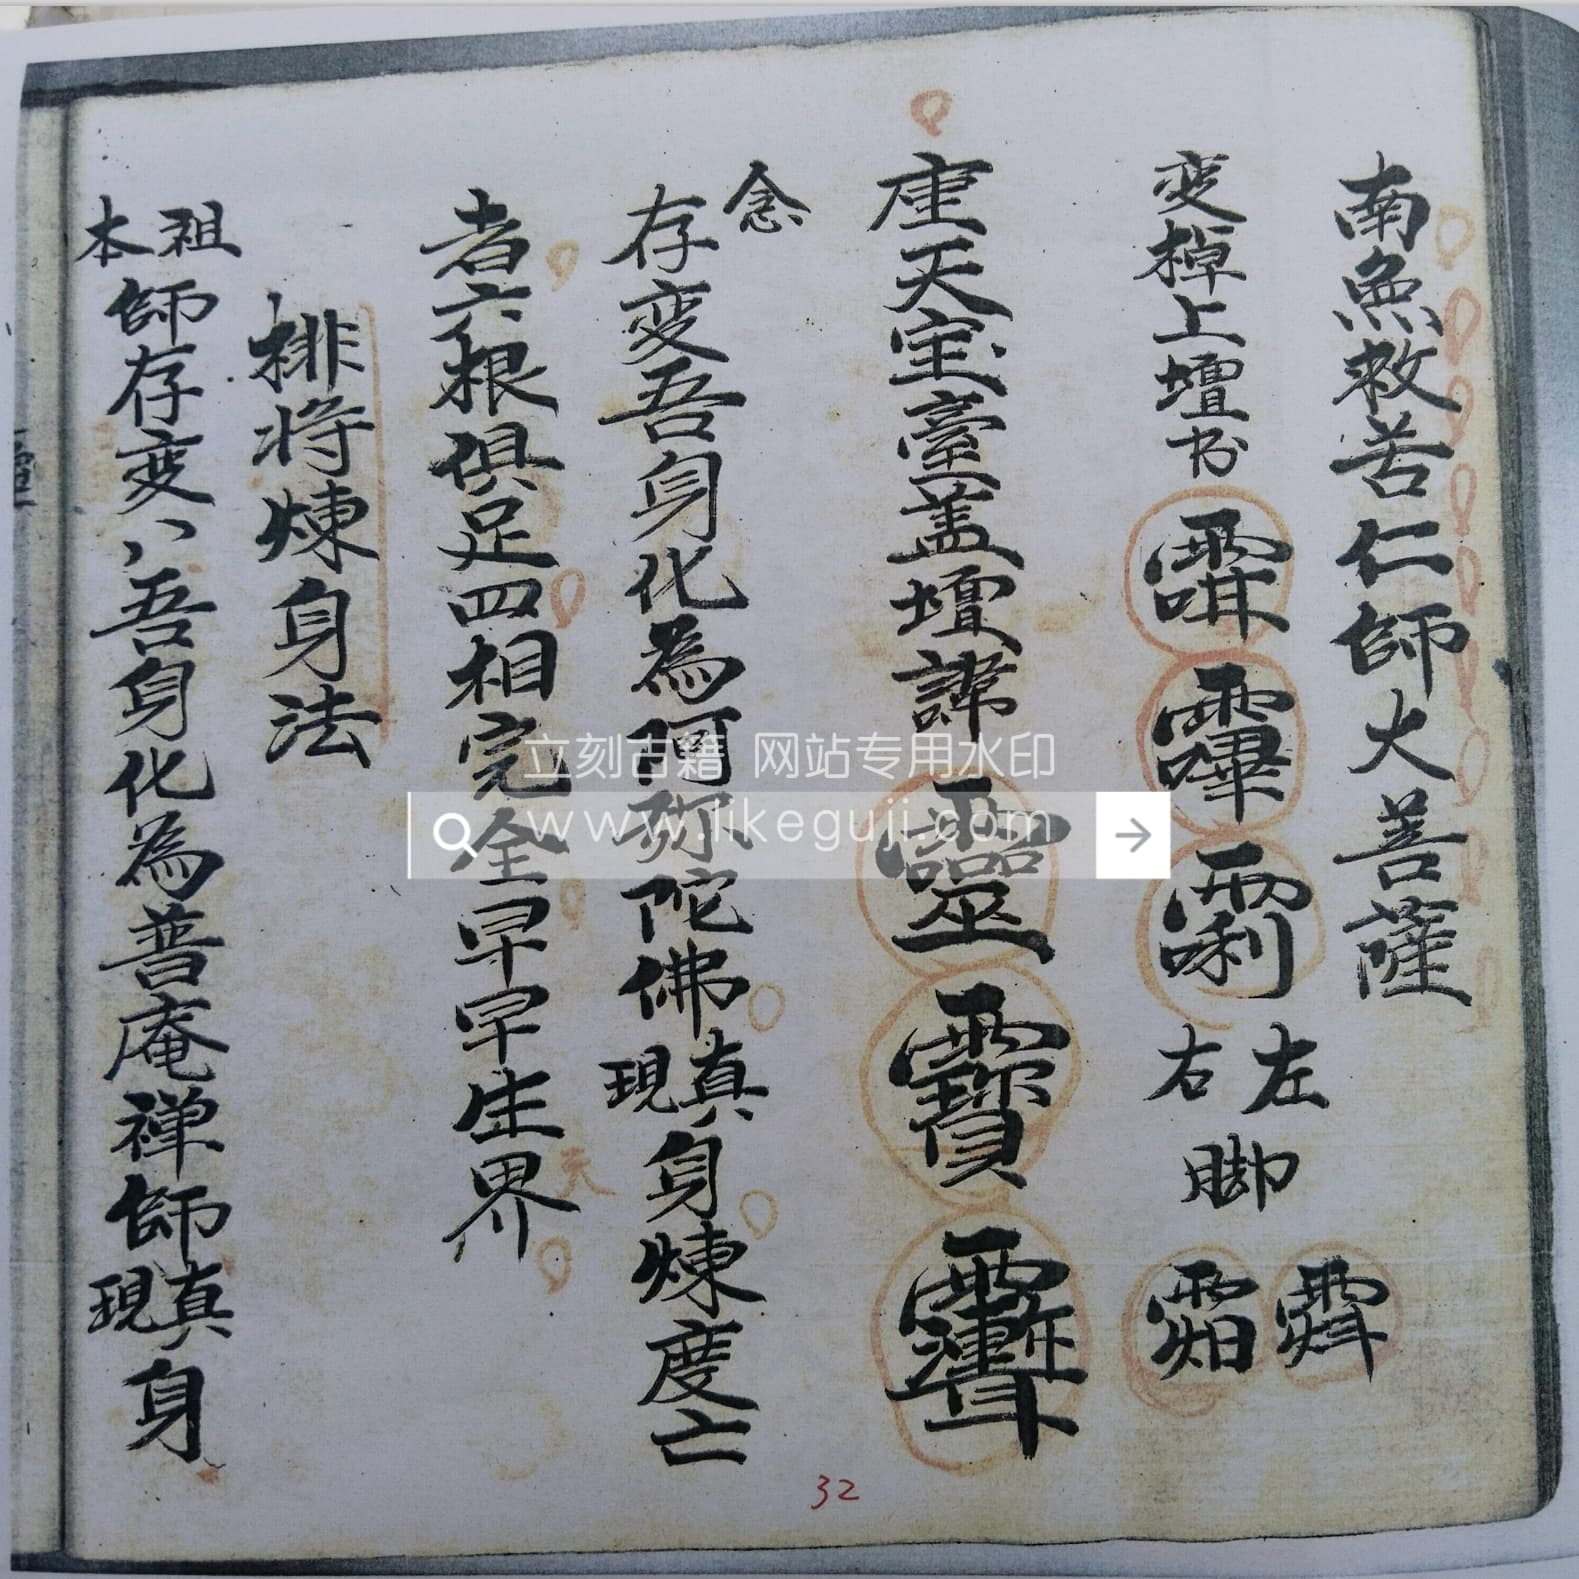 南無救苦仁師大菩薩
変棹上壇书
左右脚
天宝臺盖壇諱靈
念
存变吾身化為阿弥陀佛真現身煉度亡
者六根俱足四相完全早早生界
天
排将煉身法
祖本師存变八八吾身化為普庵禅師真現身
32
立刻古籍 网站专用水印
www.likeguji.com